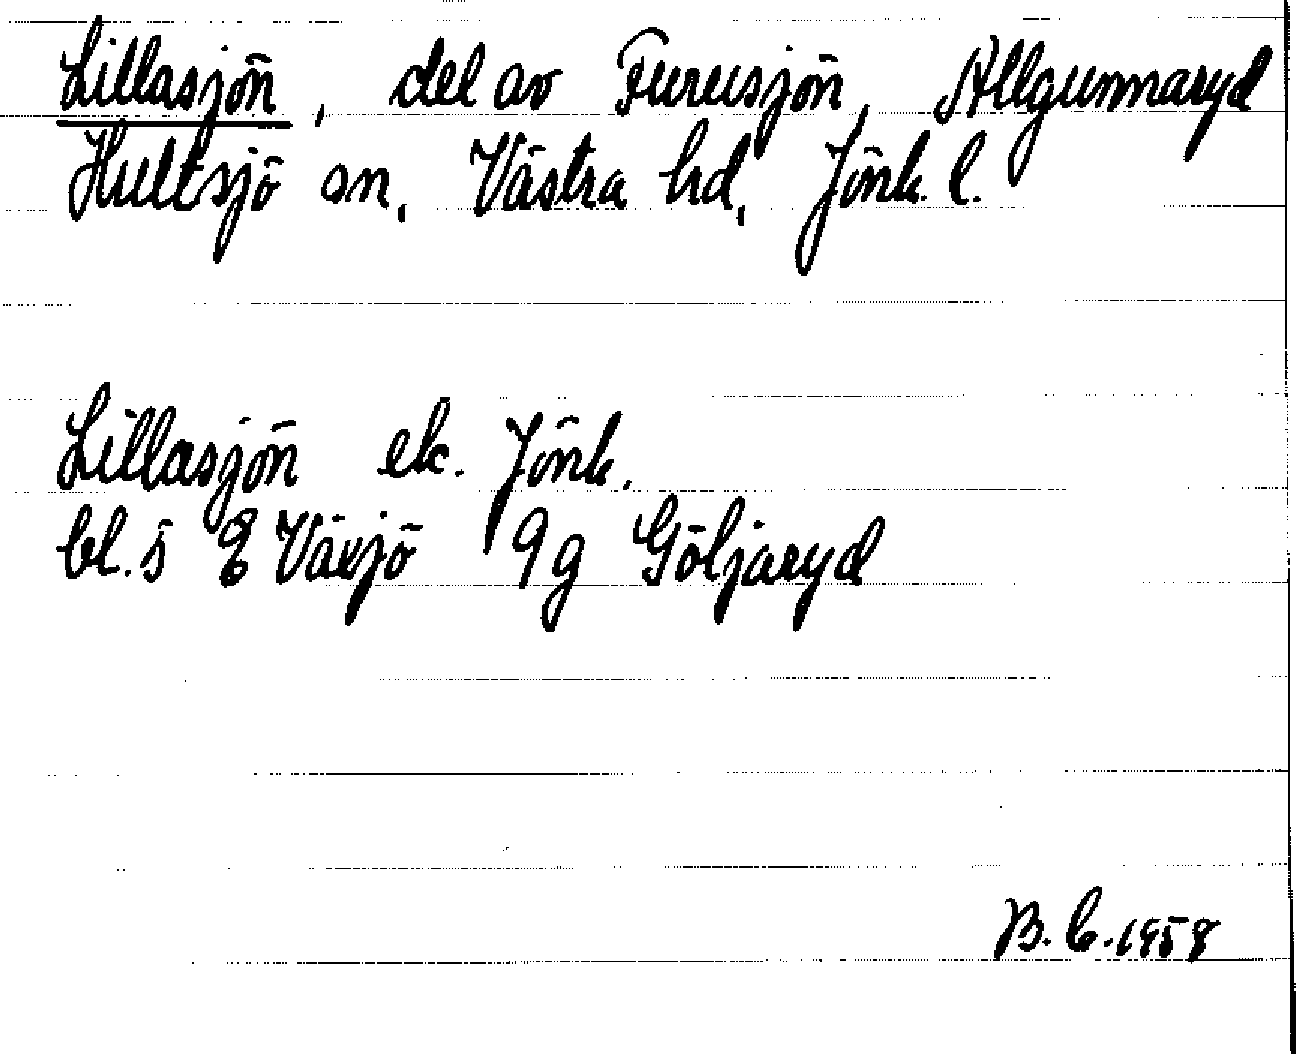 Lillasjön, del av Furusjön, Allgunnaryd
Hultsjö sn, Västra hd, Jönk. l.
Lillasjön ek. Jönk.
bl. 5 E Växjö 9g Göljaryd
B. C. 1958